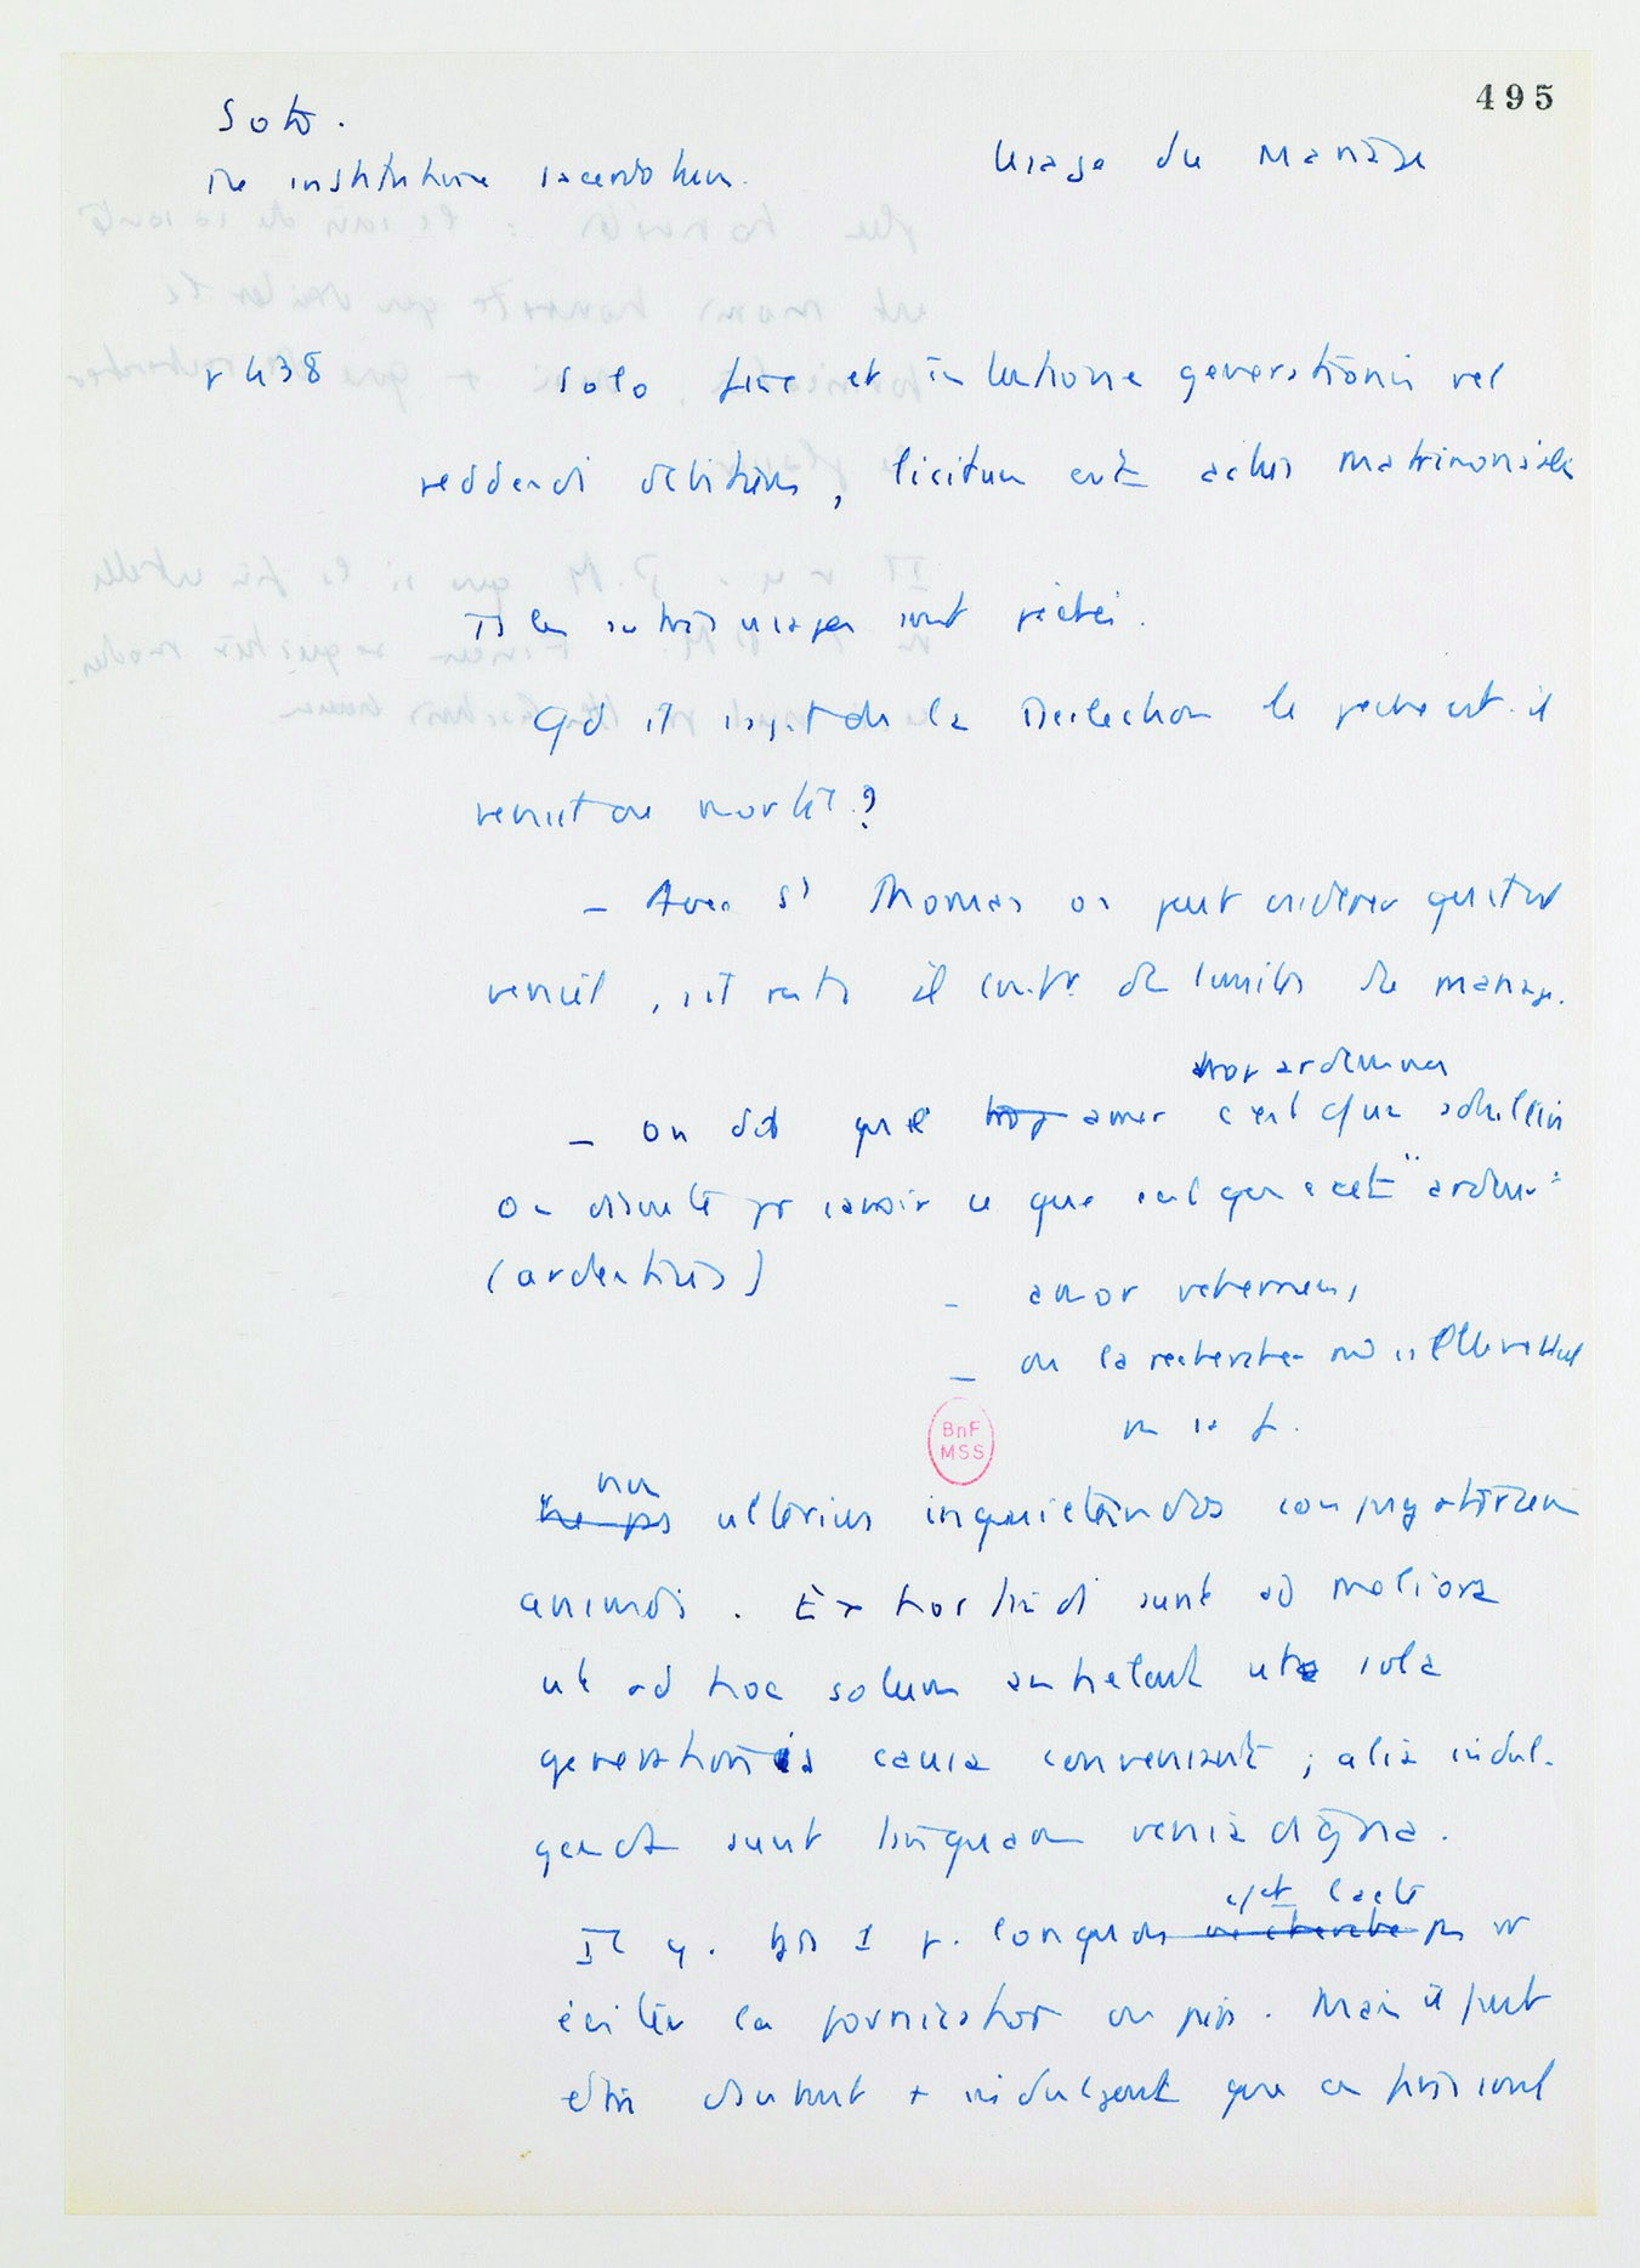 495
Soto.
De institutione sacerdotum.
Usage du mariage
p 438 solo fine et intentione generationis vel
reddendi debitum, licitum est actus matrimonialis
Ts les autres usages sont péchés.
Qd il s'agit de la délectation le péché est-il
véniel ou mortel ?
- Avec St Thomas on peut considérer qu'il est
véniel, s'il reste à l'int. de limites du mariage.
trop ardemment
- On dit que trop aimer c'est adultère
On discute pr savoir ce que c'est que cet "ardeur"
(ardentius)
- amor vehemens,
- ou la recherche
BnF
MSS
non
ne pas ulterius inquietandos conjugatorum
animos. Exhortandi sunt ad meliora
ut ad hoc solum anhelant ut sola
generationis causa conveniant ; alia indul-
genda sunt tanquam venia digna.
cet acte
Il y a 1 p. longue recherche pr
éviter la fornication ou pas. Mais il peut
être + indulgent que